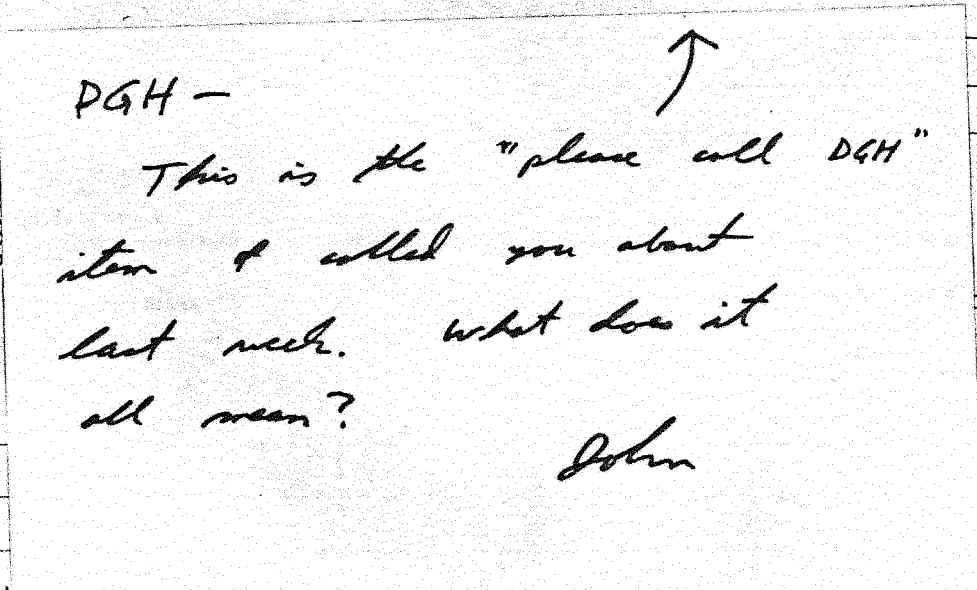 DGH —
This is the "please call DGH"
item I called you about
last week. What does it
all mean?
John